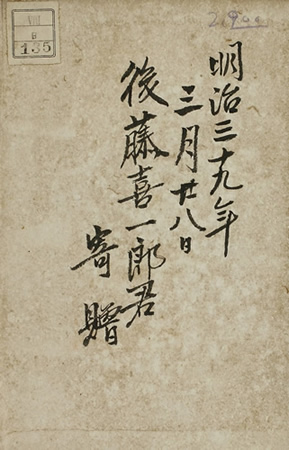 明治三十九年
三月廿八日
後藤喜一郎君
寄贈
VIII
B
135